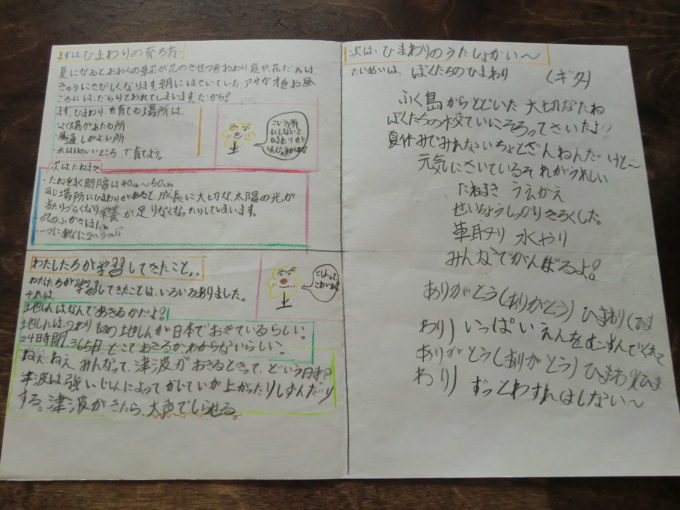 まずは、ひまわりの育ち方。
夏になるとおおくの草花が花のきせつをおわり庭や、花だんは
きゅうにさびしくなります。朝にはさいていたアサガオもお昼
ころには、だらりとおれてしまいます。だから!
まず、ひまわりを育てる場所は、
・よく陽があたる所
・風通しがよい所
・水はけのいいところ で育てよう。
こういう所
にしないと
ひまわりが
次はたねまき
・たねをまく間隔は40cm〜50cm
同じ場所にひまわりがあると、成長に大切な、太陽の光が
あたりづらくなり栄養が足りなくなったりしてしまいます。
わたしたちが学習してきたこと、、
わたしたちが学習してきたことは、いろいろありました。
それは
地しんはなんでおきるかだよ!
地しんは、つまり 地しんが日本でおきているらしい。
24時間、365日 どこでおきるかわからないらしい。
ねぇねぇ、みんなって、津波がおきるときって、どういう日
津波は強いじしんによってかいていが上がったりしずんだり
する。津波がきたら、大声でしらせる。
次は、ひまわりのうたしょうかい〜
だいめいは、ぼくたちのひまわり
ふく島からとどいた 大切なたね
ぼくたちの校ていにそろってさいたよ
夏休みでみんないなくてちょっとざんねんだけど〜
元気にさいているそれがうれしい
たねまき うえかえ
せいちょうしっかりきろくした。
草取り 水やり
みんなでがんばるよ!
ありがとう(ありがとう) ひまわり(ひま
わり) いっぱい えんをむすんでくれて
ありがとう(ありがとう) ひまわり(ひま
わり) ずっとわすれはしない〜